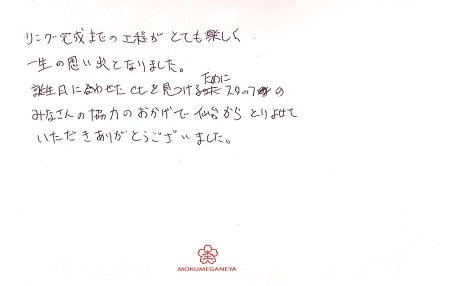 リング完成までの工程がとても楽しく
一生の思い出となりました。
誕生日に合わせたctを見つけるためにスタッフの
みなさんの協力のおかげで仙台からとりよせて
いただきありがとうございました。
MOKUMEGANEYA